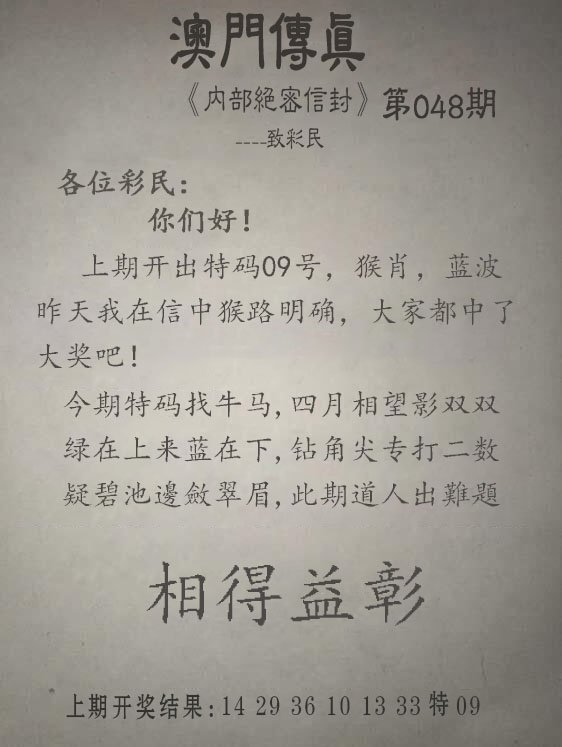 澳門傳眞
《内部絕密信封》第048期
----致彩民
各位彩民:
你们好!
上期开出特码09号，猴肖，蓝波
昨天我在信中猴路明确，大家都中了
大奖吧!
今期特码找牛马,四月相望影双双
绿在上来蓝在下,钻角尖专打二数
疑碧池邊斂翠眉,此期道人出難題
相得益彰
上期开奖结果:14 29 36 10 13 33 特 09